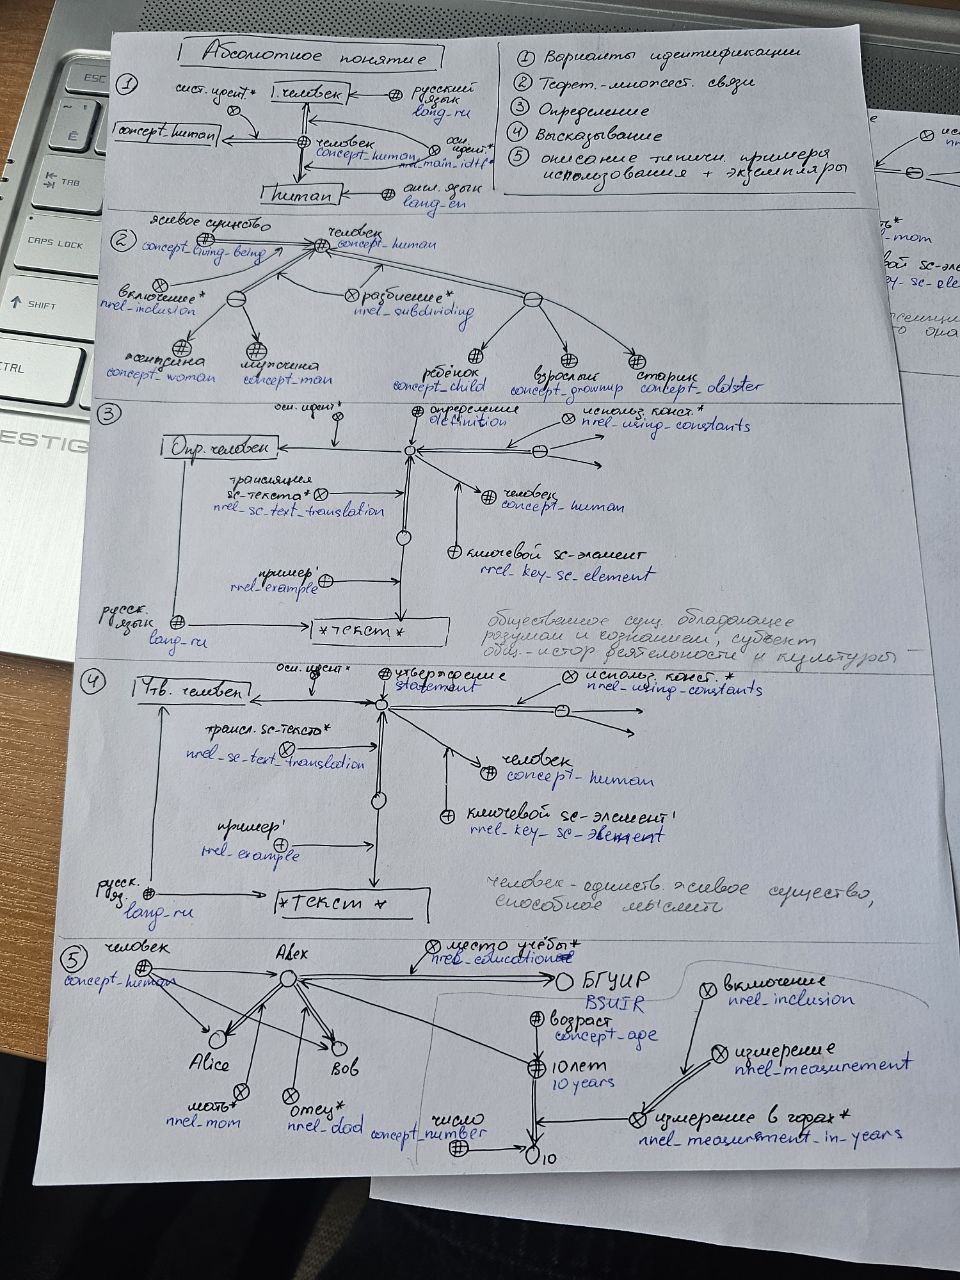 Абсолютное понятие
① Варианты идентификации
② Теорет.-множест. связи
③ Определение
④ Высказывание
⑤ описание типичн. примера
использования + экземпляры
①
сист. идент.*
человек
русский
язык
lang_ru
concept_human
человек
concept_human
осн.
идент.*
nrel_main_idtf
human
англ. язык
lang_en
②
живое существо
concept_living_being
человек
concept_human
включение*
nrel_inclusion
разбиение*
nrel_subdividing
женщина
concept_woman
мужчина
concept_man
ребёнок
concept_child
взрослый
concept_grownup
старик
concept_oldster
③
осн. идент*
определение
definition
использ. конст.*
nrel_using_constants
Опр. человек
трансляция
sc-текста*
nrel_sc_text_translation
человек
concept_human
ключевой sc-элемент
rrel_key_sc_element
пример'
rrel_example
русск.
язык
lang_ru
*текст*
общественное сущ. обладающее
разумом и сознанием, субъект
общ.-истор деятельности и культуры
④
осн. идент*
утверждение
statement
использ. конст.*
nrel_using_constants
Утв. человек
трансл. sc-текста*
nrel_sc_text_translation
человек
concept_human
ключевой sc-элемент'
rrel_key_sc_element
пример'
rrel_example
русск.
яз.
lang_ru
*текст*
человек - единств. живое существо,
способное мыслить
⑤
человек
concept_human
Alex
место учёбы*
nrel_educational
БГУИР
BSUIR
Alice
Bob
мать*
nrel_mom
отец*
nrel_dad
возраст
concept_age
10 лет
10 years
число
concept_number
10
включение
nrel_inclusion
измерение
nrel_measurement
измерение в годах*
nrel_measurement_in_years
ESC
TAB
CAPS LOCK
SHIFT
CTRL
ESTIG